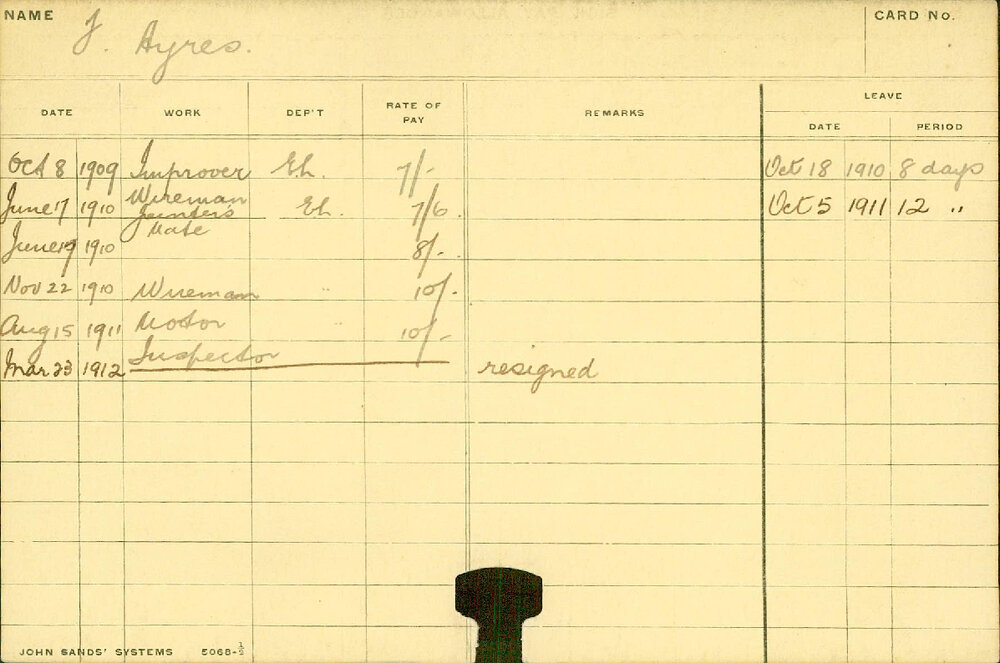 NAME J. Ayres. CARD No.
LEAVE
DATE WORK DEP'T RATE OF PAY REMARKS DATE PERIOD
Oct 8 1909 Improver El. 7/- Oct 18 1910 8 days
June 17 1910 Wireman El. 7/6. Oct 5 1911 12 "
Jointer's
June 19 1910 Mate 8/-.
Nov 22 1910 Wireman 10/-
Aug 15 1911 Motor 10/-
Inspector
Mar 23 1912 resigned
JOHN SANDS' SYSTEMS 5068-½